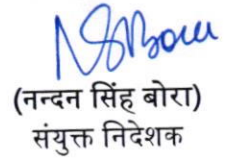 NSBora
(नन्दन सिंह बोरा)
संयुक्त निदेशक